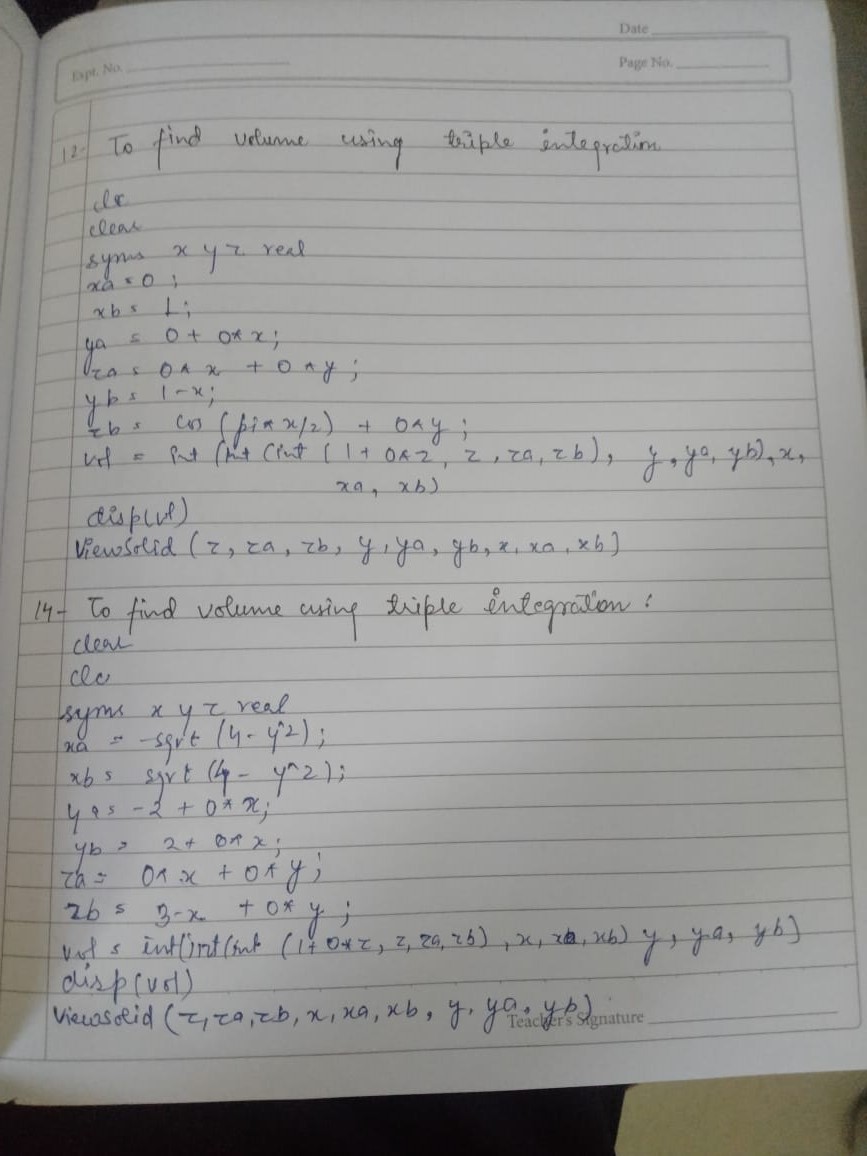 Date
Expt. No.
Page No.
12- To find volume using triple integration
clc
clear
syms x y z real
xa = 0 ;
xb = 1;
ya = 0 + 0*x;
za = 0*x + 0*y;
yb = 1-x;
zb = cos (pi*x/2) + 0*y;
vol = int (int (int ( 1+0*z, z, za, zb), y, ya, yb), x,
xa, xb)
disp(vol)
Viewsolid (z, za, zb, y, ya, yb, x, xa, xb)
14- To find volume using triple integration :
clear
clc
syms x y z real
xa = -sqrt (4-y^2);
xb = sqrt (4-y^2);
ya = -2 + 0*x;
yb = 2+ 0*x;
za = 0*x + 0*y;
zb = 3-x + 0*y;
vol = int(int(int (1+0*z, z, za, zb), x, xa, xb) y, ya, yb)
disp(vol)
viewsolid (z, za, zb, x, xa, xb, y, ya, yb)
Teacher's Signature